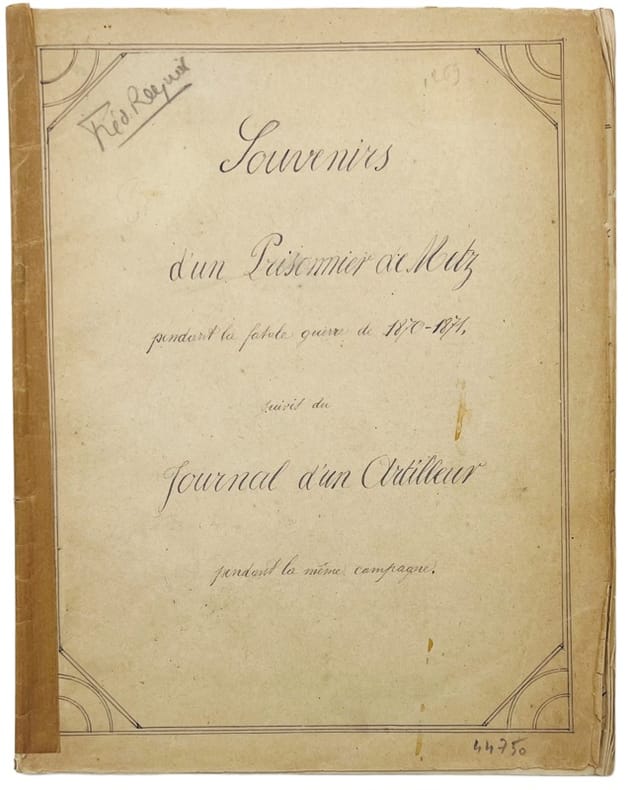 Fréd. Regnat
Souvenirs
d'un Prisonnier de Metz
pendant la fatale guerre de 1870-1871,
suivis du
Journal d'un Artilleur
pendant la même campagne.
44750